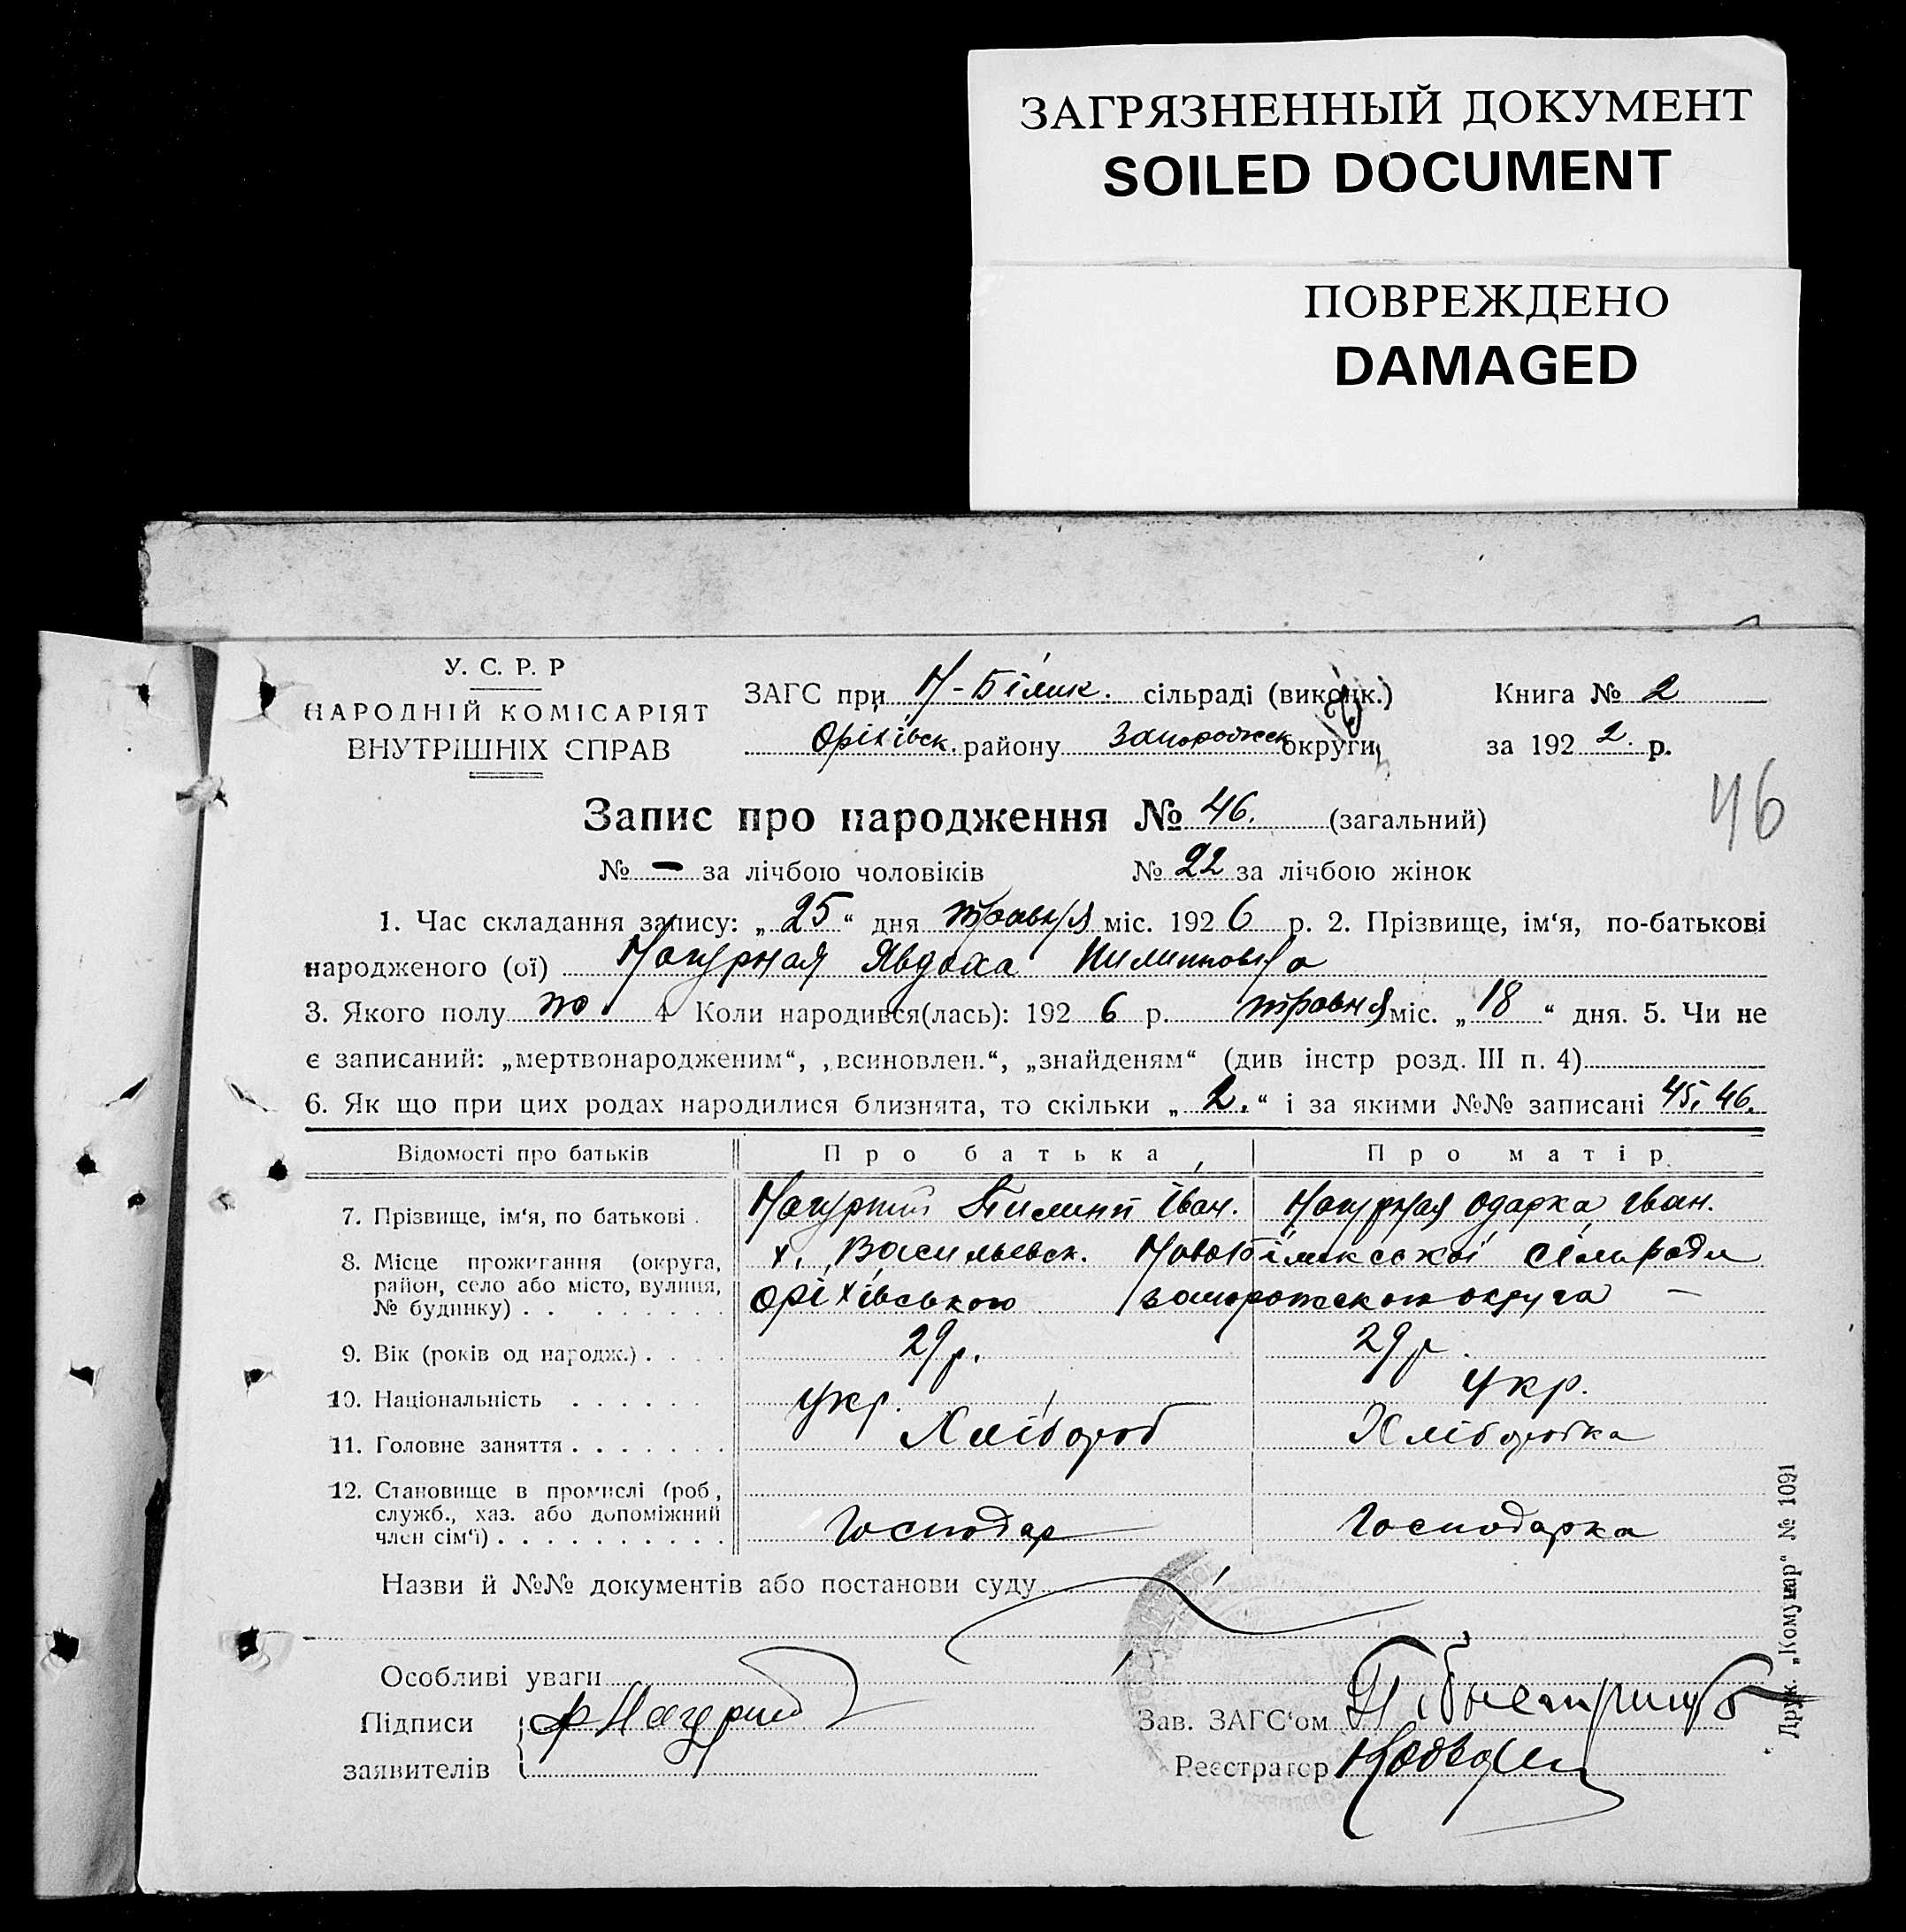 ЗАГРЯЗНЕННЫЙ ДОКУМЕНТ
SOILED DOCUMENT
ПОВРЕЖДЕНО
DAMAGED
У. С. Р. Р
НАРОДНІЙ КОМІСАРІЯТ
ВНУТРІШНІХ СПРАВ
ЗАГС при Н-Білик. сільраді (виконк.)
Оріхівск. району Запорожск округи
Книга № 2
за 192 2. р.
46
Запис про народження № 46. (загальний)
№ – за лічбою чоловіків № 22 за лічбою жінок
1. Час складання запису: „ 25 “ дня травня міс. 192 6 р. 2. Прізвище, ім‘я, по-батькові
народженого (ої) Нагурная Явдоха Пилиповна
3. Якого полу 4 Коли народився(лась): 192 6 р. травня міс. „ 18 “ дня. 5. Чи не
є записаний: „мертвонародженим“, „всиновлен.“, „знайденям“ (див інстр розд. III п. 4)
6. Як що при цих родах народилися близнята, то скільки „ 2. “ і за якими №№ записані 45, 46.
Відомості про батьків Про батька Про матір
7. Прізвище, ім‘я, по батькові . Нагурний Пилип Іван. Нагурная Одарка Іван.
8. Місце прожигання (округа, х. Васильевск. Новобіликської сільради
район, село або місто, вулиця, Оріхівського Запорожского округа –
№ будинку) . .
9. Вік (років од народж.) . . . 29 р. 29 р.
10. Національність . . . . . . укр. укр.
11. Головне заняття . . . . . . . Хлібороб Хліборобка
12. Становище в промислі (роб,
служб., хаз. або допоміжний
член сім‘ї) . . . . . . . . . . Господар Господарка
Назви й №№ документів або постанови суду
Особливі уваги
Підписи Ф Нагурний
Зав. ЗАГС‘ом
заявителів
Реєстратор
Друк. „Комунар“ № 1091